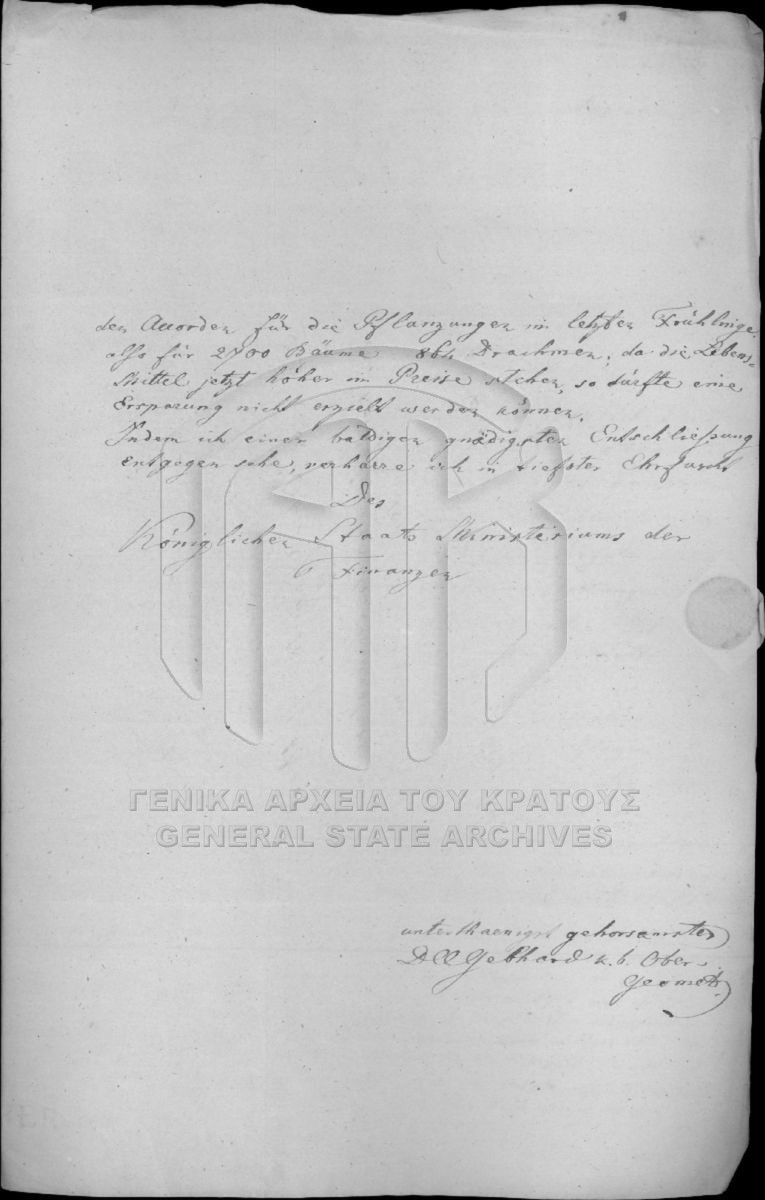 der Accorden für die Pflanzungen im letzten Frühlinge
also für 2700 Bäume 864 Drachmen; da die Lebens-
Mittel jetzt höher im Preise stehen, so dürfte eine
Ersparung nicht erzielt werden können.
Indem ich einer baldigen gnädigsten Entschließung
entgegen sehe, verharre ich in tiefster Ehrfurcht
Des
Königlichen Staats Ministeriums der
Finanzen
ΓΕΝΙΚΑ ΑΡΧΕΙΑ ΤΟΥ ΚΡΑΤΟΥΣ
GENERAL STATE ARCHIVES
unterthaenigst gehorsamster
Gebhard k. b. Ober
Geomet.